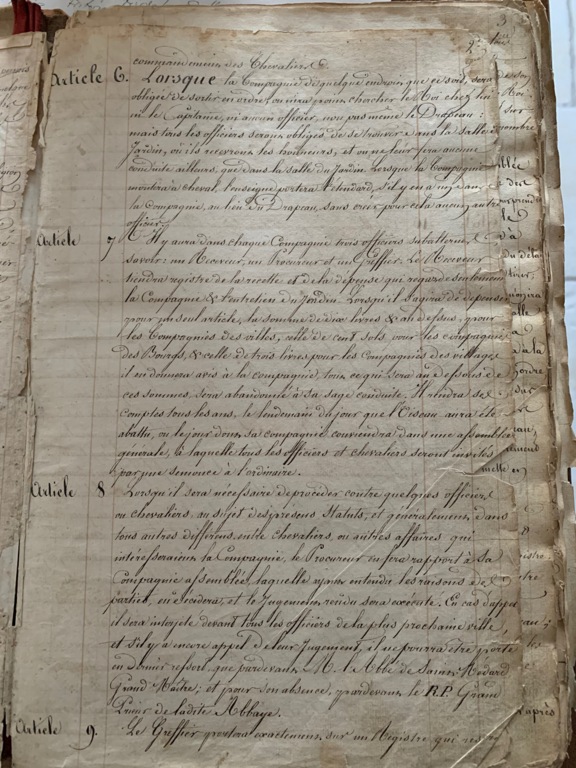 3
commandement des Chevaliers &.
Article 6. Lorsque la Compagnie de quelque endroit que ce soit, sera
obligée de sortir en ordre, on n'ira point chercher le Roi chez lui
ni le Capitaine, ni aucun officier, non pas meme le Drapeau :
mais tous les officiers seront obligés de se trouver dans la salle
Jardin, où ils recevront les honneurs, et on ne leur fera aucune
conduite ailleurs, que dans la salle du Jardin. Lorsque la Compagnie
montera à cheval, l'enseigne portera l'étendard, s'il y en a un, dans
la Compagnie, au lieu du Drapeau, sans créer pour cela aucun autre
officier.
Article 7 Il y aura dans chaque Compagnie trois officiers subalternes
savoir : un Receveur, un Procureur et un Greffier. Le Receveur
tiendra registre de la recette et de la dépense qui regardent
la Compagnie & l'entretien du Jardin. Lorsqu'il s'agira de dépenser
pour un seul article, la somme de dix livres & au dessus, pour
les Compagnies des villes, celle de cent sols pour les compagnies
des Bourgs, & celle de trois livres pour les Compagnies des villages
il en donnera avis à la compagnie, tout ce qui sera au dessous de
ces sommes, sera abandonné à sa sage conduite. Il rendra ses
comptes tous les ans, le lendemain du jour que l'Oiseau aura été
abattu, ou le jour dont sa compagnie conviendra dans une assemblée
generale, à laquelle tous les officiers et chevaliers seront invités
par une semonce à l'ordinaire.
Article 8 Lorsqu'il sera nécessaire de procéder contre quelques officiers
ou chevaliers, au sujet des présens Statuts, et généralement dans
tous autres différens, entre chevaliers, ou autres affaires qui
intéresseraient la Compagnie, le Procureur en fera rapport à sa
Compagnie assemblée, laquelle ayant entendu les raisons des
parties, en décidera, et le Jugement rendu sera exécuté. En cas d'appel
il sera interjeté devant tous les officiers de la plus prochaine ville,
et s'il y a encore appel de leur Jugement, il ne pourra être porté
en dernier ressort, que pardevant M. l'Abbé de Saint Médard
Grand Maître ; et pour son absence, pardevant le R.P. Grand
Prieur de ladite Abbaye.
Article 9. Le Greffier portera exactement sur un Registre qui